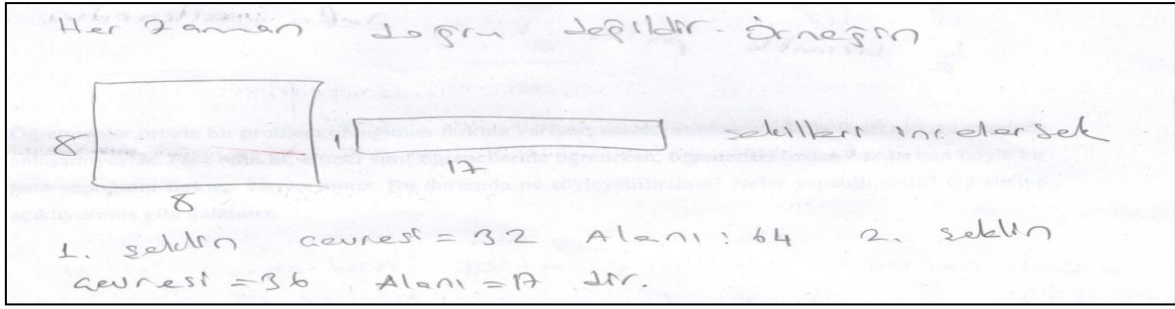 Her zaman doğru değildir. Örneğin
8 1 şekilleri incelersek
17
8
1. şeklin çevresi = 32 Alanı : 64 2. şeklin
çevresi = 36 Alanı = 17 dir.